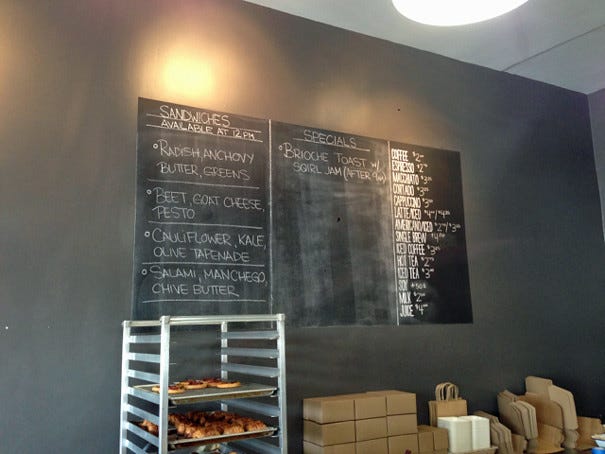 SANDWICHES
AVAILABLE AT 12PM
• RADISH, ANCHOVY
BUTTER, GREENS
• BEET, GOAT CHEESE,
PESTO
• CAULIFLOWER, KALE,
OLIVE TAPENADE
• SALAMI, MANCHEGO,
CHIVE BUTTER
SPECIALS
• BRIOCHE TOAST W/
SQIRL JAM (AFTER 9AM)
COFFEE $2
ESPRESSO $2
MACCHIATO $3
CORTADO $3
CAPPUCCINO $3
LATTE/ICED $4/$4
AMERICANO/ICED $2/$3
SINGLE BREW $4
ICED COFFEE $3
HOT TEA $2
ICED TEA $3
SOY
MILK $2
JUICE $4